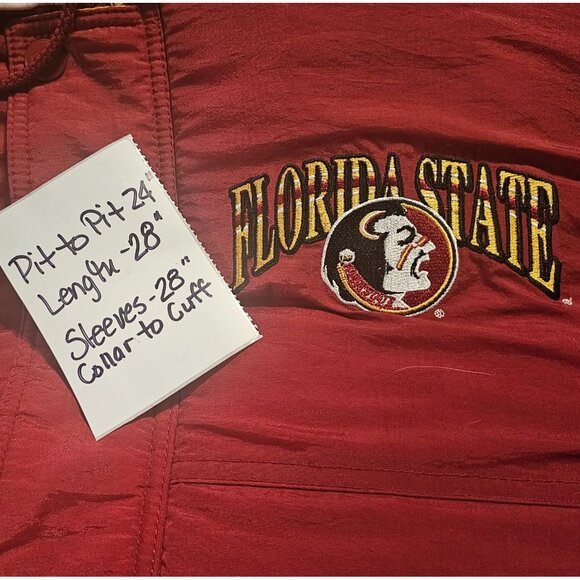 Pit to Pit 24"
Length - 28"
Sleeves - 28"
Collar to Cuff
FLORIDA STATE
®